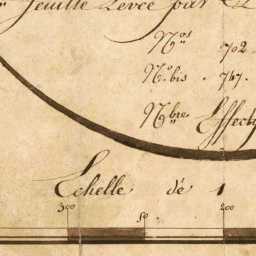 feuille Levée par
N.os 702
N.o bis . 747.
N.bre Effect
Echelle de 1
300 50 200